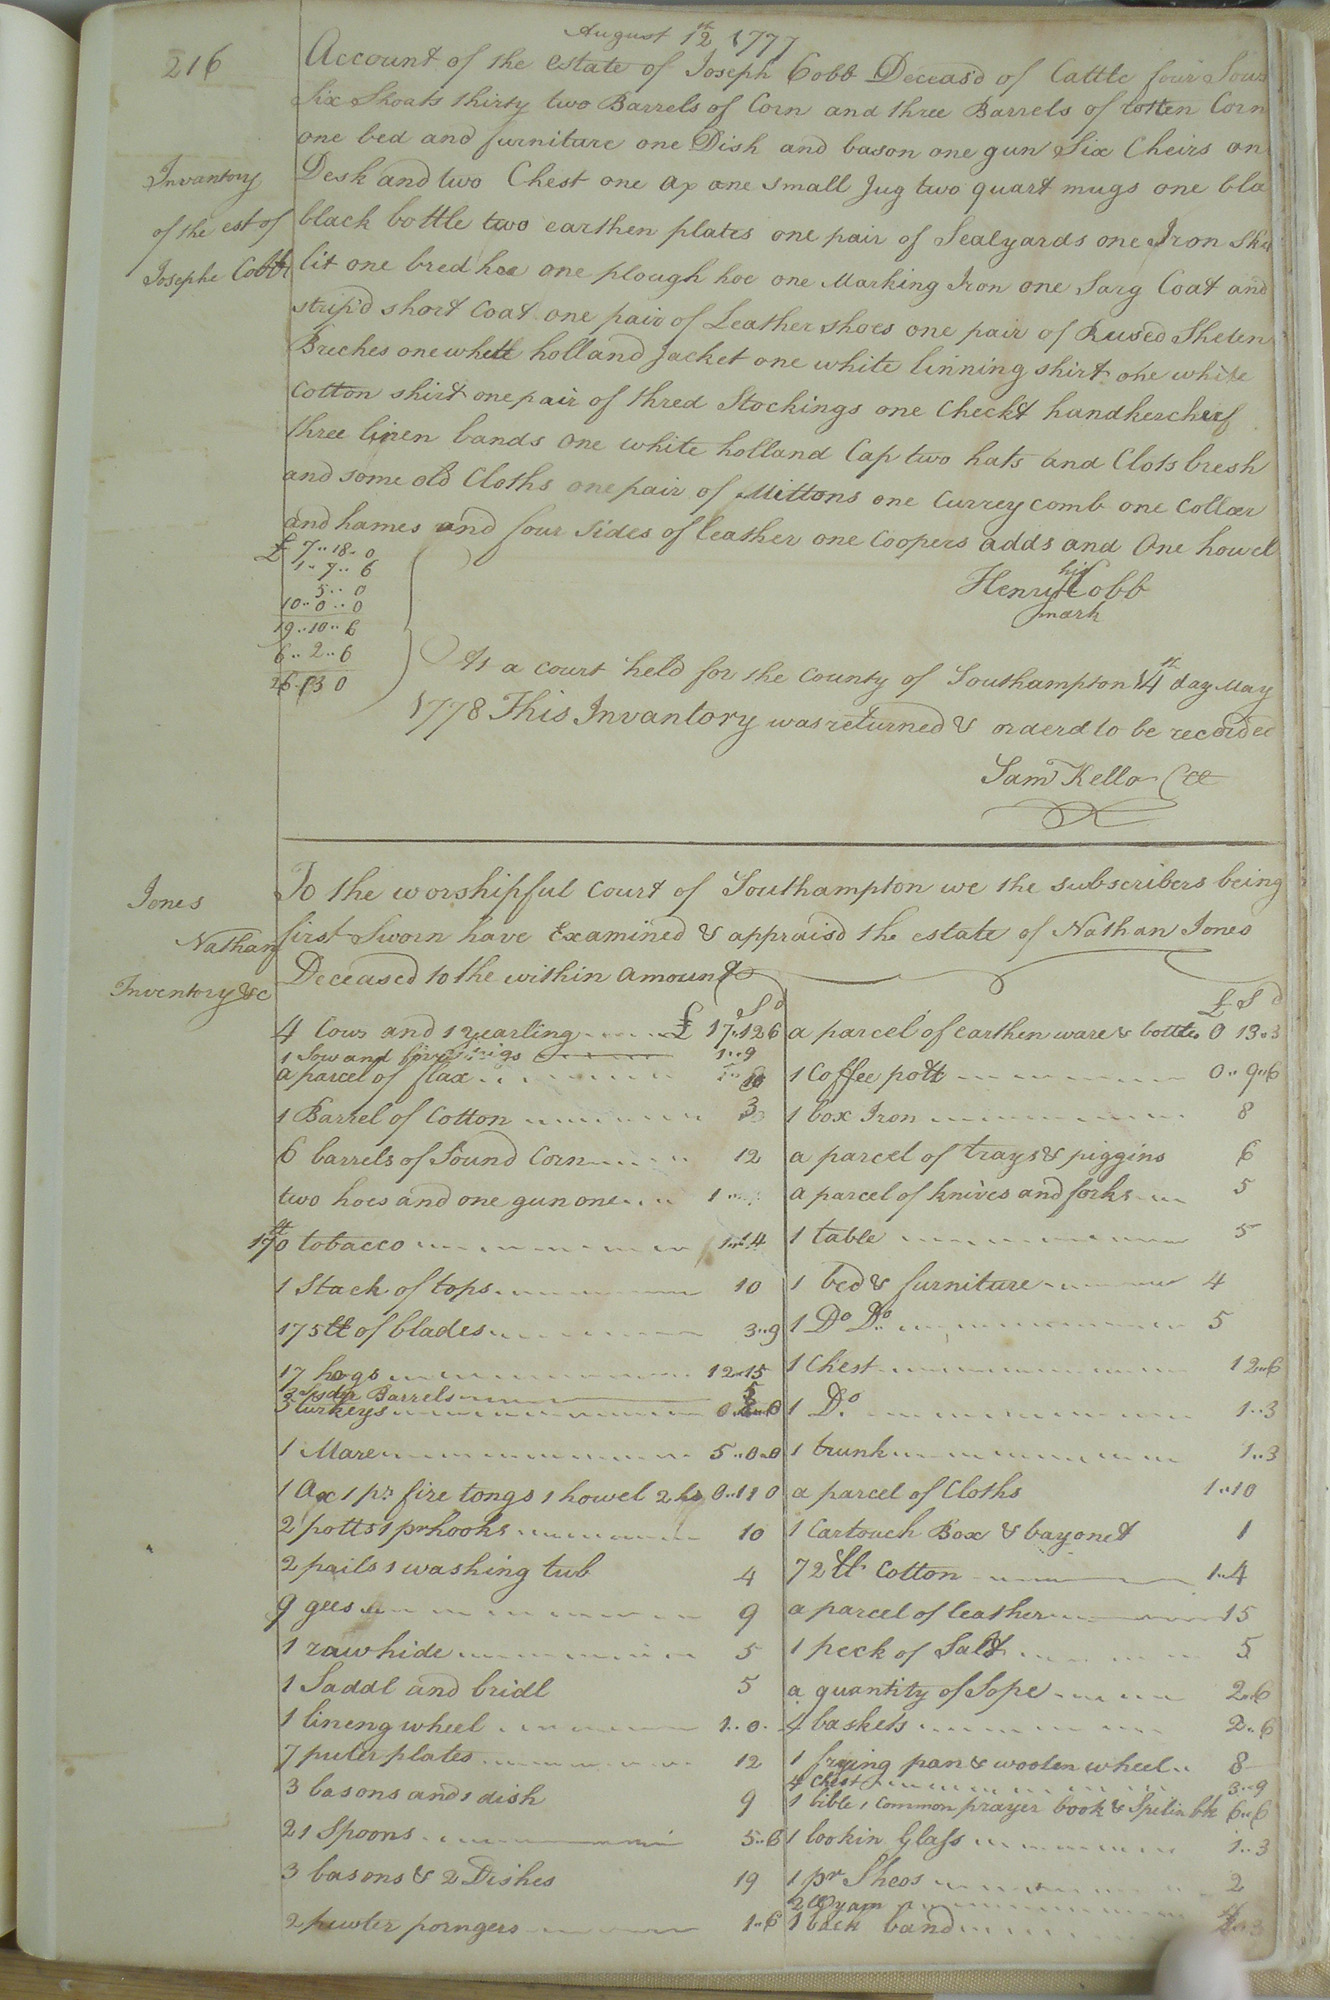 216
August 12th 1777
Account of the estate of Joseph Cobb Deceas'd of Cattle four Sows
Six Shoats thirty two Barrels of Corn and three Barrels of rotten Corn
one bed and furnitare one Dish and bason one gun Six Cheirs on
Invantory
of the est of
Josephe Cobb
Desk and two Chest one ax one small Jug two quart mugs one bla
black bottle two earthen plates one pair of Sealyards one Iron Skil
lit one bred hoe one plough hoe one Marking Iron one Sarg Coat and
strip'd short Coat one pair of Leather shoes one pair of Reused Sheten
Breches one white holland Jacket one white linning shirt one white
Cotton shirt one pair of thred Stockings one Checkt handkercheif
three linen bands one white holland Cap two hats and Clots bresh
and some old Cloths one pair of Mittons one Currey comb one Collar
and hames and four Sides of leather one Coopers adds and One howel
£ 7..18..0
1..7..6
5..0
10..0..0
19..10..6
6..2..6
26 13 0
his
Henry Cobb
mark
At a court held for the County of Southampton 14th day May
1778 This Invantory was returned & orderd to be recorded
Sam Kello Cc
Jones
Nathan
Inventory &c
To the worshipful Court of Southampton we the subscribers being
first Sworn have Examined & appraisd the estate of Nathan Jones
Deceased to the within amount
S d
4 Cows and 1 yearling £ 17..12 6
1 Sow and five pigs 1..9
a parcel of flax 10
1 Barrel of Cotton 3
6 barrels of Sound Corn 12
two hoes and one gun one 1
170 lt tobacco 1..14
1 Stack of tops 10
175 lt of blades 3..9
17 hogs 12..15
Barrels 5
3 turkeys
1 Mare 5..0..0
1 Ax 1 pr fire tongs 1 howel 0..11 0
2 potts 1 pr hooks 10
2 pails 1 washing tub 4
9 gees 9
1 raw hide 5
1 Saddl and bridl 5
1 lineng wheel 1..0
7 puter plates 12
3 basons and 1 dish 9
21 Spoons 5..6
3 basons & 2 Dishes 19
2 pewter porngers 1..6
£ S d
a parcel of earthen ware & bottles 0 13..3
1 Coffee pott 0..9..6
1 box Iron 8
a parcel of trays & piggins 6
a parcel of knives and forks 5
1 table 5
1 bed & furniture 4
1 Do Do 5
1 Chest 12..6
1 Do 1..3
1 trunk 1..3
a parcel of Cloths 1..10
1 Cartouch Box & bayonet 1
72 lt Cotton 1..4
a parcel of leather 15
1 peck of Salt 5
a quantity of Sope 2..6
4 baskets 2..6
1 frying pan & woolen wheel 8
4 Chest 3..9
1 bible 1 Common prayer book & Spelin bk 6..6
1 lookin Glass 1..3
1 pr Sheos 2
yarn
1 back band